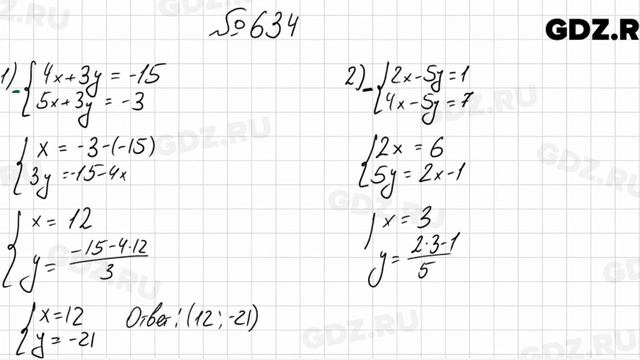 № 634
GDZ.R
1) - { 4x + 3y = -15
5x + 3y = -3
{ x = -3 - (-15)
3y = -15 - 4x
{ x = 12
y = \frac{-15 - 4 \cdot 12}{3}
{ x = 12
y = -21
Ответ: (12; -21)
2) - { 2x - 5y = 1
4x - 5y = 7
{ 2x = 6
5y = 2x - 1
{ x = 3
y = \frac{2 \cdot 3 - 1}{5}
GDZ.RU
GDZ.RU
GDZ.RU
GDZ.RU
GDZ.RU